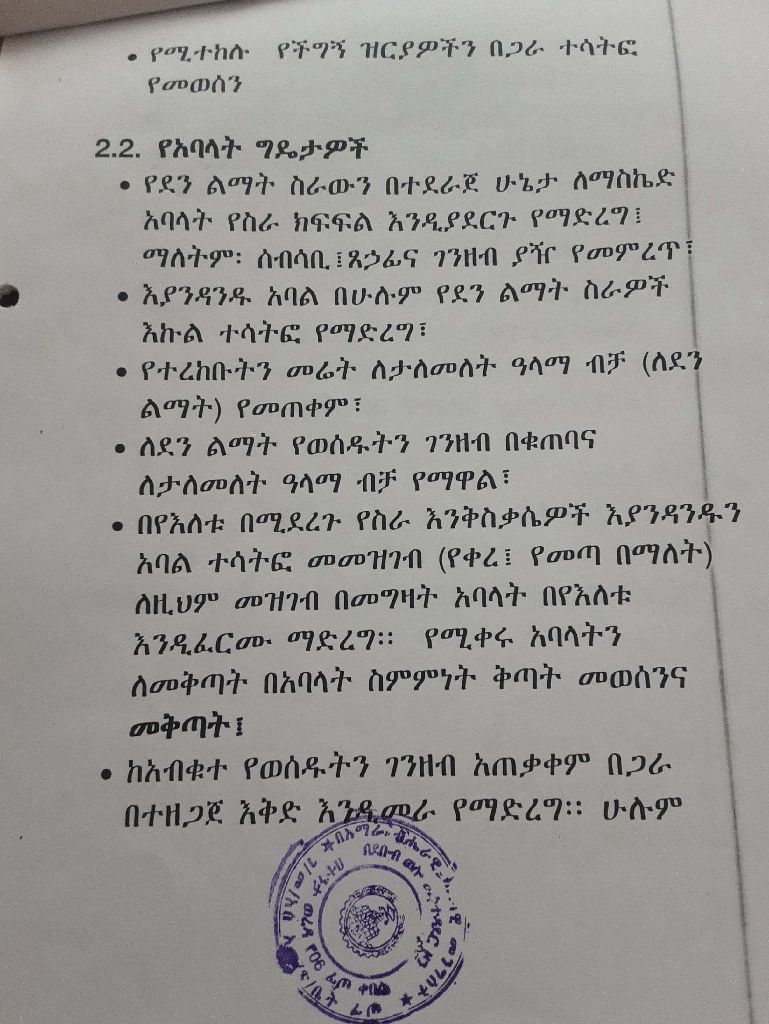 • የሚተከሉ የችግኝ ዝርያዎችን በጋራ ተሳትፎ
የመወሰን
2.2. የአባላት ግዴታዎች
• የደን ልማት ስራውን በተደራጀ ሁኔታ ለማስኬድ
አባላት የስራ ክፍፍል እንዲያደርጉ የማድረግ፤
ማለትም፡ ሰብሳቢ፤ጸኃፊና ገንዘብ ያዥ የመምረጥ፣
• እያንዳንዱ አባል በሁሉም የደን ልማት ስራዎች
እኩል ተሳትፎ የማድረግ፣
• የተረከቡትን መሬት ለታለመለት ዓላማ ብቻ (ለደን
ልማት) የመጠቀም፣
• ለደን ልማት የወሰዱትን ገንዘብ በቁጠባና
ለታለመለት ዓላማ ብቻ የማዋል፣
• በየእለቱ በሚደረጉ የስራ እንቅስቃሴዎች እያንዳንዱን
አባል ተሳትፎ መመዝገብ (የቀረ፤ የመጣ በማለት)
ለዚህም መዝገብ በመግዛት አባላት በየእለቱ
እንዲፈርሙ ማድረግ፡፡ የሚቀሩ አባላትን
ለመቅጣት በአባላት ስምምነት ቅጣት መወሰንና
መቅጣት፤
• ከአብቁተ የወሰዱትን ገንዘብ አጠቃቀም በጋራ
በተዘጋጀ እቅድ እንዲመራ የማድረግ፡፡ ሁሉም